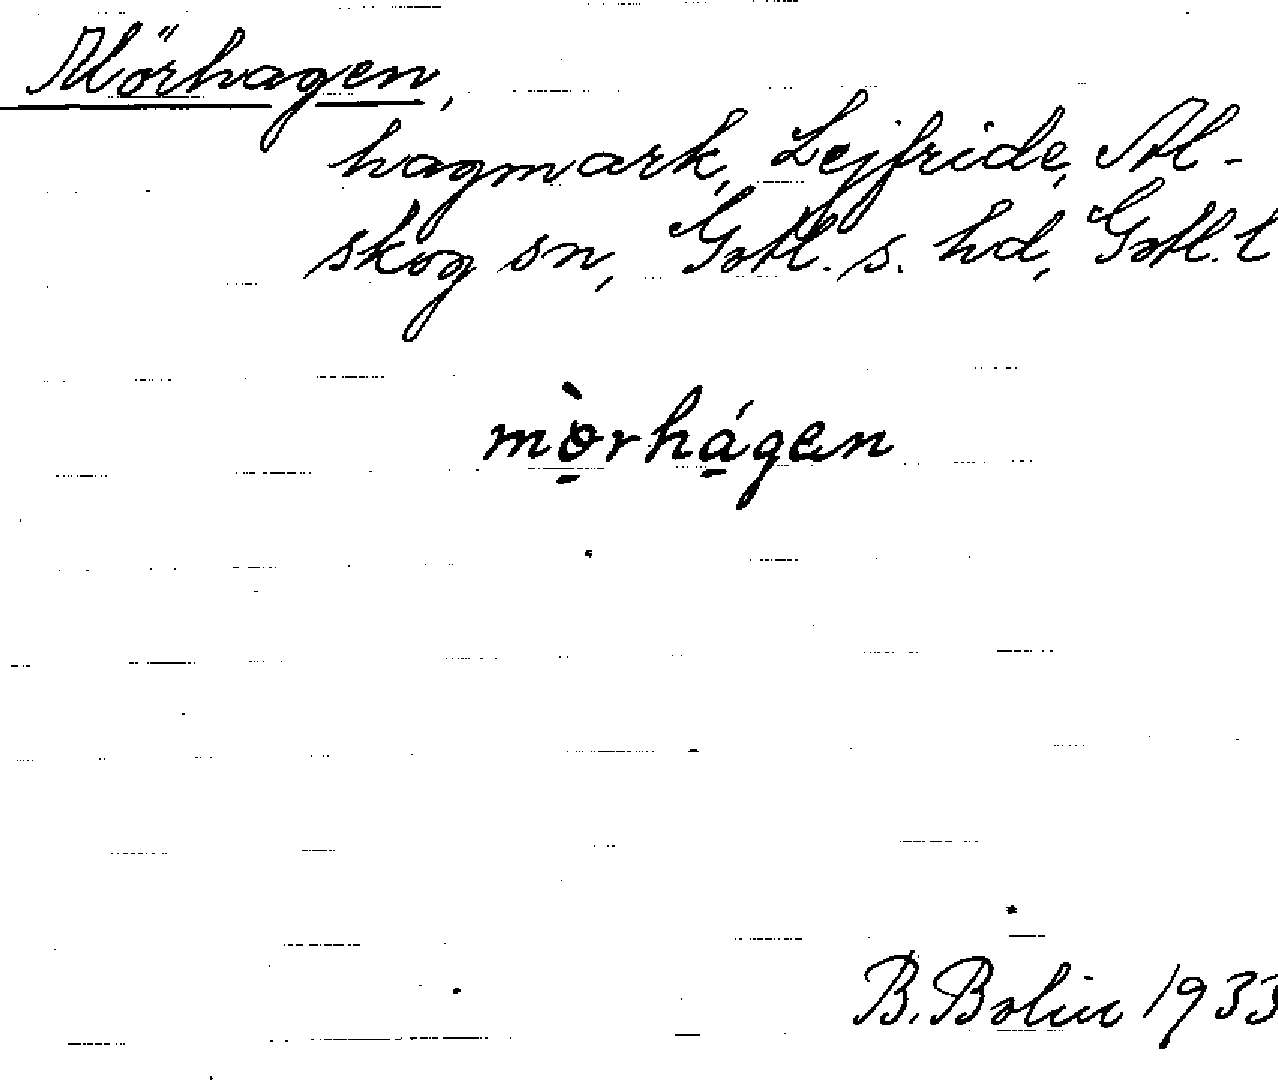 Mörhagen,
hagmark, Lejfride, Al-
skog sn, Gotl. s. hd, Gotl. l
mòrhágen
B. Bolin 1933